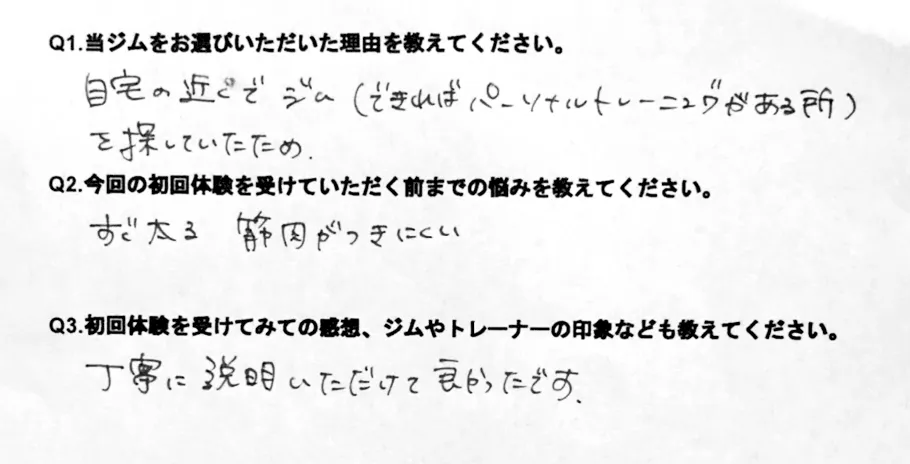 Q1.当ジムをお選びいただいた理由を教えてください。
自宅の近くで ジム (できればパーソナルトレーニングがある所)
を探していたため.
Q2.今回の初回体験を受けていただく前までの悩みを教えてください。
すぐ太る 筋肉がつきにくい
Q3.初回体験を受けてみての感想、ジムやトレーナーの印象なども教えてください。
丁寧に説明いただけて良かったです.